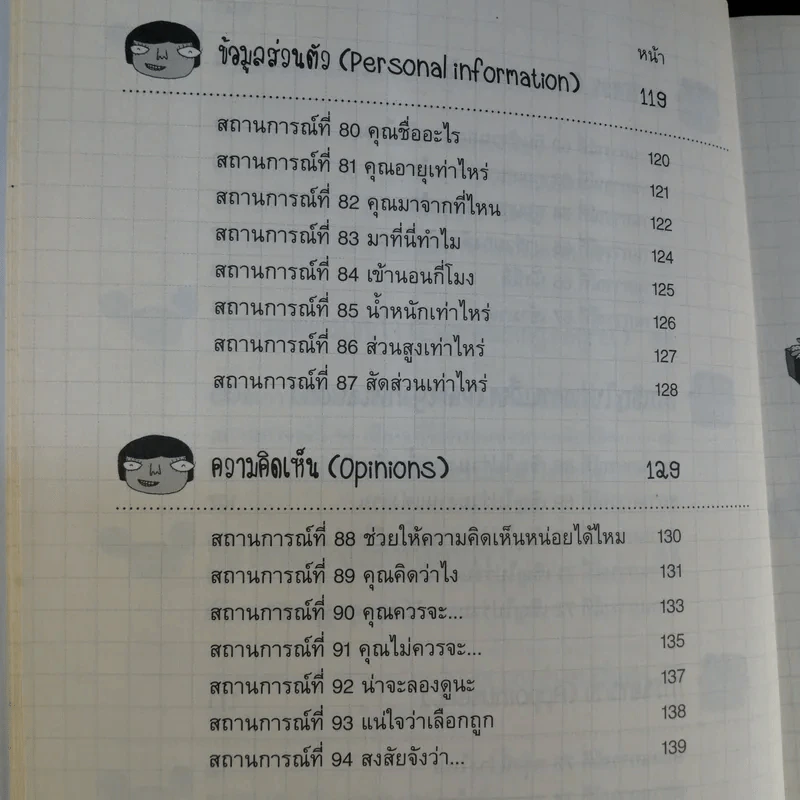 หน้า
ข้อมูลส่วนตัว (Personal information) 119
สถานการณ์ที่ 80 คุณชื่ออะไร 120
สถานการณ์ที่ 81 คุณอายุเท่าไหร่ 121
สถานการณ์ที่ 82 คุณมาจากที่ไหน 122
สถานการณ์ที่ 83 มาที่นี่ทำไม 124
สถานการณ์ที่ 84 เข้านอนกี่โมง 125
สถานการณ์ที่ 85 น้ำหนักเท่าไหร่ 126
สถานการณ์ที่ 86 ส่วนสูงเท่าไหร่ 127
สถานการณ์ที่ 87 สัดส่วนเท่าไหร่ 128
ความคิดเห็น (Opinions) 129
สถานการณ์ที่ 88 ช่วยให้ความคิดเห็นหน่อยได้ไหม 130
สถานการณ์ที่ 89 คุณคิดว่าไง 131
สถานการณ์ที่ 90 คุณควรจะ... 133
สถานการณ์ที่ 91 คุณไม่ควรจะ... 135
สถานการณ์ที่ 92 น่าจะลองดูนะ 137
สถานการณ์ที่ 93 แน่ใจว่าเลือกถูก 138
สถานการณ์ที่ 94 สงสัยจังว่า... 139